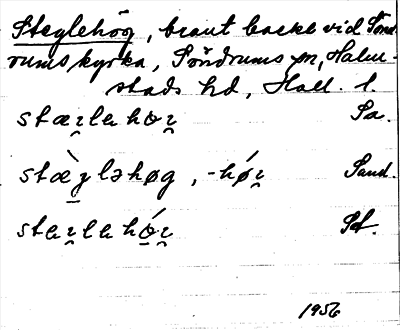 Steglehög, brant backe vid Sönd
rums kyrka, Söndrums sn, Halm-
stads hd, Hall. l.
Sa.
stæ̀gləhøg, -hóꭚ Sand.
Sf.
1956